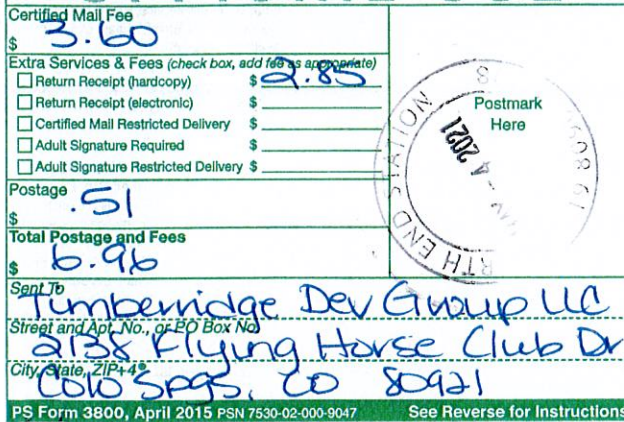 Certified Mail Fee
$ 3.60
Extra Services & Fees (check box, add fee as appropriate)
Return Receipt (hardcopy) $ 2.85
Return Receipt (electronic) $
Certified Mail Restricted Delivery $
Adult Signature Required $
Adult Signature Restricted Delivery $
Postage
$ .51
Total Postage and Fees
$ 6.96
Postmark
Here
STATION
4 2021
Sent To
Timberridge Dev Group LLC
Street and Apt. No., or PO Box No.
2138 Flying Horse Club Dr
City, State, ZIP+4®
Colo Spgs, CO 80921
PS Form 3800, April 2015 PSN 7530-02-000-9047 See Reverse for Instructions